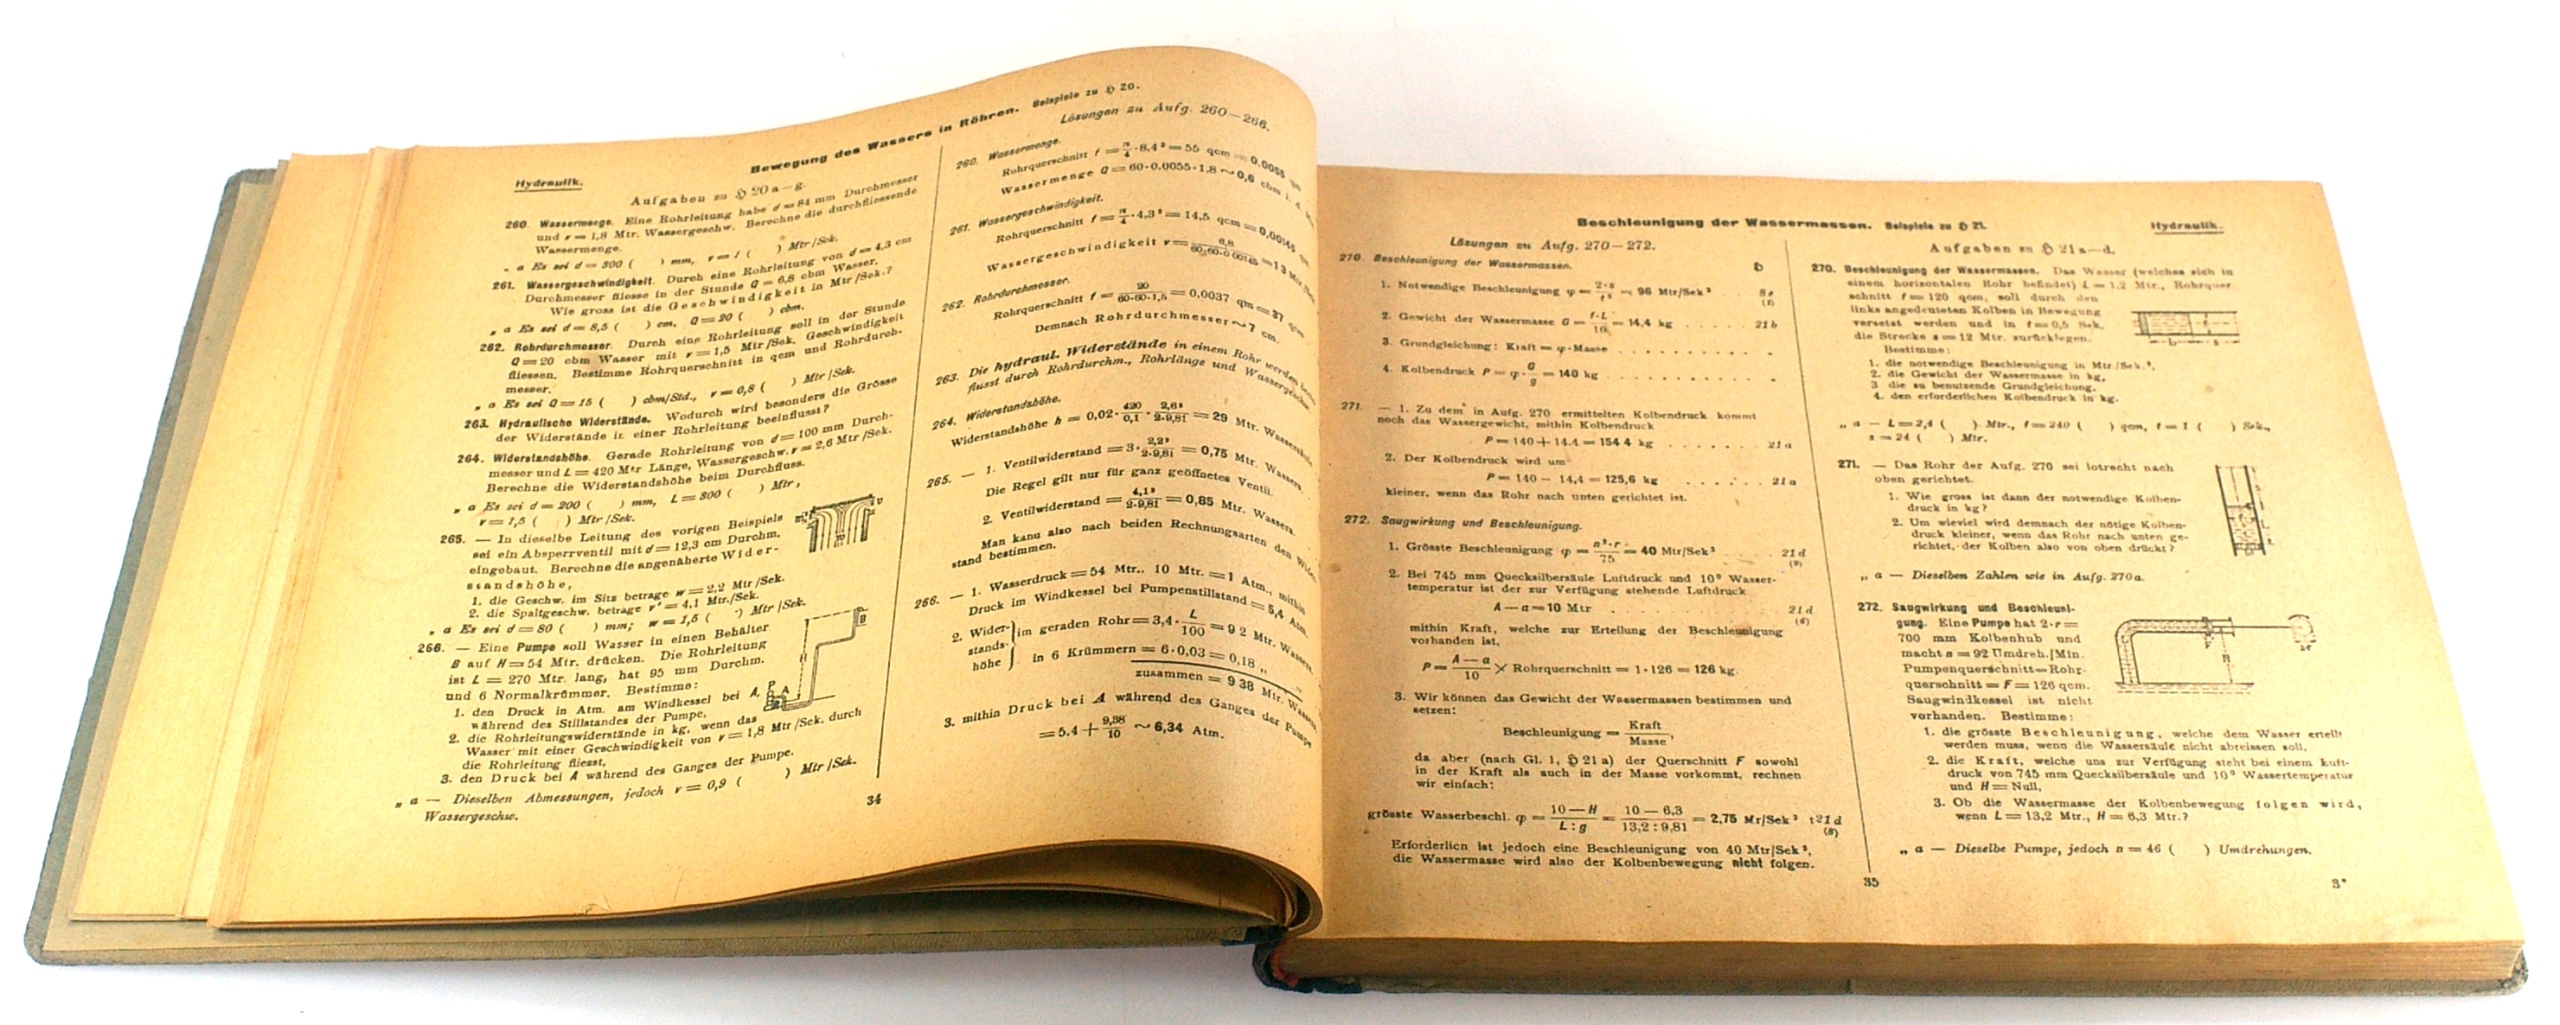 Hydraulik.
Bewegung des Wassers in Röhren. Beispiele zu § 20.
Aufgaben zu § 20 a–g.
260. Wassermenge. Eine Rohrleitung habe d = 84 mm Durchmesser
und v = 1,8 Mtr. Wassergeschw. Berechne die durchfliessende
Wassermenge.
„ a Es sei d = 300 ( ) mm, v = 1 ( ) Mtr/Sek.
261. Wassergeschwindigkeit. Durch eine Rohrleitung von d = 4,3 cm
Durchmesser fliesse in der Stunde Q = 6,8 cbm Wasser.
Wie gross ist die Geschwindigkeit in Mtr/Sek.?
„ a Es sei d = 8,5 ( ) cm, Q = 20 ( ) cbm.
262. Rohrdurchmesser. Durch eine Rohrleitung soll in der Stunde
Q = 20 cbm Wasser mit v = 1,5 Mtr/Sek. Geschwindigkeit
fliessen. Bestimme Rohrquerschnitt in qcm und Rohrdurch-
messer.
„ a Es sei Q = 15 ( ) cbm/Std., v = 0,8 ( ) Mtr/Sek.
263. Hydraulische Widerstände. Wodurch wird besonders die Grösse
der Widerstände in einer Rohrleitung beeinflusst?
264. Widerstandshöhe. Gerade Rohrleitung von d = 100 mm Durch-
messer und L = 420 Mtr Länge, Wassergeschw. v = 2,6 Mtr/Sek.
Berechne die Widerstandshöhe beim Durchfluss.
„ a Es sei d = 200 ( ) mm, L = 300 ( ) Mtr,
v = 1,5 ( ) Mtr/Sek.
265. — In dieselbe Leitung des vorigen Beispiels
sei ein Absperrventil mit d = 12,3 cm Durchm.
eingebaut. Berechne die angenäherte Wider-
standshöhe,
1. die Geschw. im Sitz betrage w = 2,2 Mtr/Sek.
2. die Spaltgeschw. betrage v' = 4,1 Mtr./Sek.
„ a Es sei d = 80 ( ) mm; w = 1,5 ( ) Mtr/Sek.
266. — Eine Pumpe soll Wasser in einen Behälter
B auf H = 54 Mtr. drücken. Die Rohrleitung
ist L = 270 Mtr. lang, hat 95 mm Durchm.
und 6 Normalkrümmer. Bestimme:
1. den Druck in Atm. am Windkessel bei A,
während des Stillstandes der Pumpe,
2. die Rohrleitungswiderstände in kg, wenn das
Wasser mit einer Geschwindigkeit von v = 1,8 Mtr/Sek. durch
die Rohrleitung fliesst,
3. den Druck bei A während des Ganges der Pumpe.
„ a — Dieselben Abmessungen, jedoch v = 0,9 ( ) Mtr/Sek.
Wassergeschw.
B
H
P
A
Lösungen zu Aufg. 260–266.
260. Wassermenge.
Rohrquerschnitt f = π/4 · 8,4² = 55 qcm = 0,0055 qm
Wassermenge Q = 60 · 0,0055 · 1,8 ~ 0,6 cbm i. d.
261. Wassergeschwindigkeit.
Rohrquerschnitt f = π/4 · 4,3² = 14,5 qcm = 0,00145 qm
Wassergeschwindigkeit v = 6,8/60·60·0 00145 = 1 3
262. Rohrdurchmesser.
Rohrquerschnitt f = 20/60·60·1,5 = 0,0037 qm = 37 qcm
Demnach Rohrdurchmesser ~ 7 cm.
263. Die hydraul. Widerstände in einem Rohr werden
flusst durch Rohrdurchm., Rohrlänge und
264. Widerstandshöhe.
Widerstandshöhe h = 0,02 · 420/0,1 · 2,6²/2·9,81 = 29 Mtr.
265. — 1. Ventilwiderstand = 3 · 2,2²/2·9,81 = 0,75 Mtr. Wassers.
Die Regel gilt nur für ganz geöffnetes Ventil.
2. Ventilwiderstand = 4,1²/2·9,81 = 0,85 Mtr. Wassers.
Man kann also nach beiden Rechnungsarten den
stand bestimmen.
266. — 1. Wasserdruck = 54 Mtr., 10 Mtr. = 1 Atm., mithin
Druck im Windkessel bei Pumpenstillstand = 5,4 Atm.
2. Wider-
stands-
höhe
im geraden Rohr = 3,4 · L/100 = 9 2 Mtr. Wassers,
in 6 Krümmern = 6 · 0,03 = 0,18 „ „
zusammen = 9 38 Mtr.
3. mithin Druck bei A während des Ganges der Pumpe
= 5.4 + 9,38/10 ~ 6,34 Atm.
34
Beschleunigung der Wassermassen. Beispiele zu § 21.
Hydraulik.
Lösungen zu Aufg. 270–272.
270. Beschleunigung der Wassermassen. §
1. Notwendige Beschleunigung φ = 2·s/t² = 96 Mtr/Sek²
2. Gewicht der Wassermasse G = f·L/10 = 14,4 kg . . . . . 21 b
3. Grundgleichung: Kraft = φ · Masse . . . . . . . . . .
4. Kolbendruck P = φ · G/g = 140 kg . . . . . . . . . .
271. — 1. Zu dem in Aufg. 270 ermittelten Kolbendruck kommt
noch das Wassergewicht, mithin Kolbendruck
P = 140 + 14.4 = 154 4 kg . . . . . . . 21 a
2. Der Kolbendruck wird um
P = 140 − 14,4 = 125,6 kg . . . . . . 21 a
kleiner, wenn das Rohr nach unten gerichtet ist.
272. Saugwirkung und Beschleunigung.
1. Grösste Beschleunigung φ = n²·r/75 = 40 Mtr/Sek² . . . . 21 d
2. Bei 745 mm Quecksilbersäule Luftdruck und 10° Wasser-
temperatur ist der zur Verfügung stehende Luftdruck
A — a = 10 Mtr . . . . . . . . . 21 d
(6)
mithin Kraft, welche zur Erteilung der Beschleunigung
vorhanden ist,
P = A — a/10 × Rohrquerschnitt = 1 · 126 = 126 kg.
3. Wir können das Gewicht der Wassermassen bestimmen und
setzen:
Beschleunigung = Kraft/Masse,
da aber (nach Gl. 1, § 21 a) der Querschnitt F sowohl
in der Kraft als auch in der Masse vorkommt, rechnen
wir einfach:
grösste Wasserbeschl. φ = 10 — H/L : g = 10 — 6,3/13,2 : 9,81 = 2,75 Mr/Sek² 21 d
(8)
Erforderlich ist jedoch eine Beschleunigung von 40 Mtr/Sek²,
die Wassermasse wird also der Kolbenbewegung nicht folgen.
Aufgaben zu § 21 a–d.
270. Beschleunigung der Wassermassen. Das Wasser (welches sich in
einem horizontalen Rohr befindet) L = 1,2 Mtr., Rohrquer-
schnitt f = 120 qcm, soll durch den
links angedeuteten Kolben in Bewegung
versetzt werden und in t = 0,5 Sek.
die Strecke s = 12 Mtr. zurücklegen.
Bestimme:
1. die notwendige Beschleunigung in Mtr/Sek.²,
2. die Gewicht der Wassermasse in kg,
3 die zu benutzende Grundgleichung,
4. den erforderlichen Kolbendruck in kg.
„ a — L = 2,4 ( ) Mtr., f = 240 ( ) qcm, t = 1 ( ) Sek.,
s = 24 ( ) Mtr.
271. — Das Rohr der Aufg. 270 sei lotrecht nach
oben gerichtet.
1. Wie gross ist dann der notwendige Kolben-
druck in kg?
2. Um wieviel wird demnach der nötige Kolben-
druck kleiner, wenn das Rohr nach unten ge-
richtet, der Kolben also von oben drückt?
„ a — Dieselben Zahlen wie in Aufg. 270 a.
272. Saugwirkung und Beschleuni-
gung. Eine Pumpe hat 2·r =
700 mm Kolbenhub und
macht n = 92 Umdreh./Min.
Pumpenquerschnitt = Rohr-
querschnitt = F = 126 qcm.
Saugwindkessel ist nicht
vorhanden. Bestimme:
1. die grösste Beschleunigung, welche dem Wasser erteilt
werden muss, wenn die Wassersäule nicht abreissen soll,
2. die Kraft, welche uns zur Verfügung steht bei einem Luft-
druck von 745 mm Quecksilbersäule und 10° Wassertemperatur
und H = Null,
3. Ob die Wassermasse der Kolbenbewegung folgen wird,
wenn L = 13,2 Mtr., H = 6,3 Mtr.?
„ a — Dieselbe Pumpe, jedoch n = 46 ( ) Umdrehungen.
35
3*